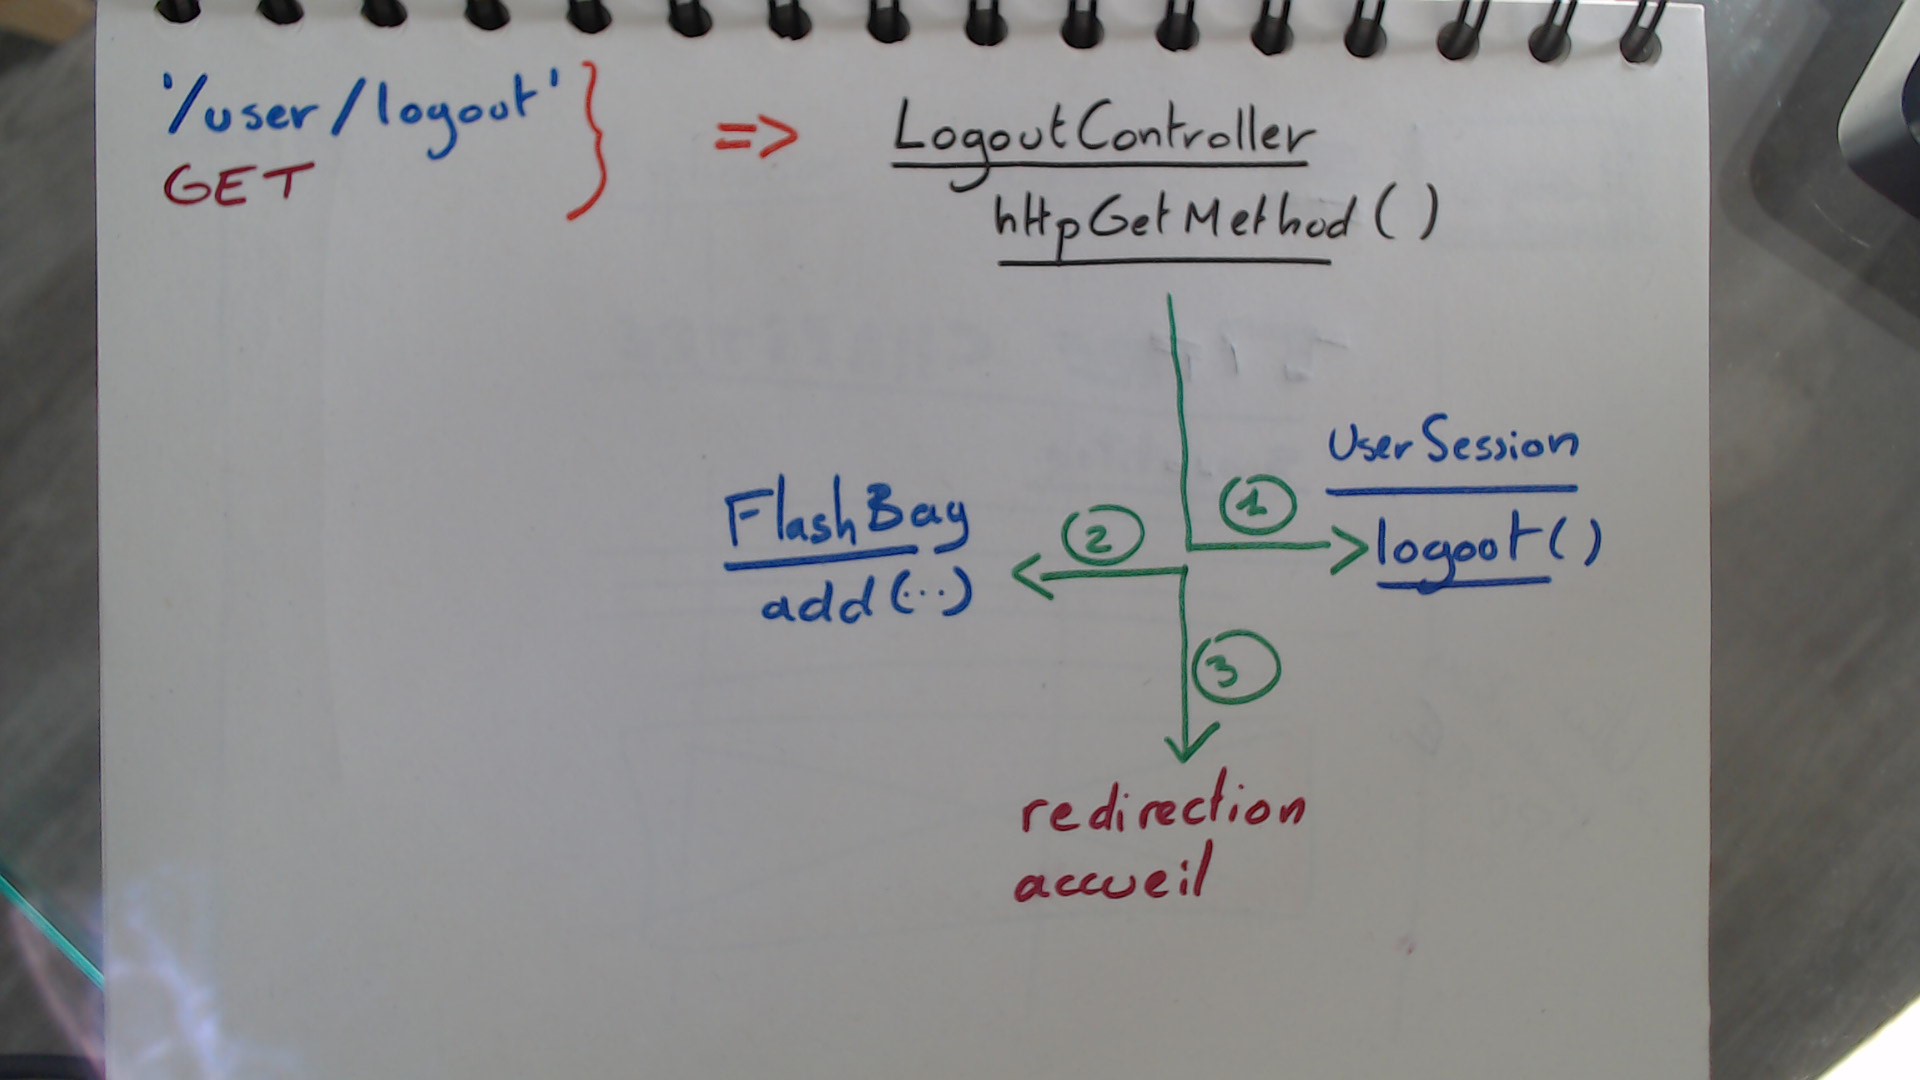 '/user/logout'
GET
=> LogoutController
httpGetMethod()
UserSession
1
logout()
FlashBag
2
add(...)
3
redirection
accueil